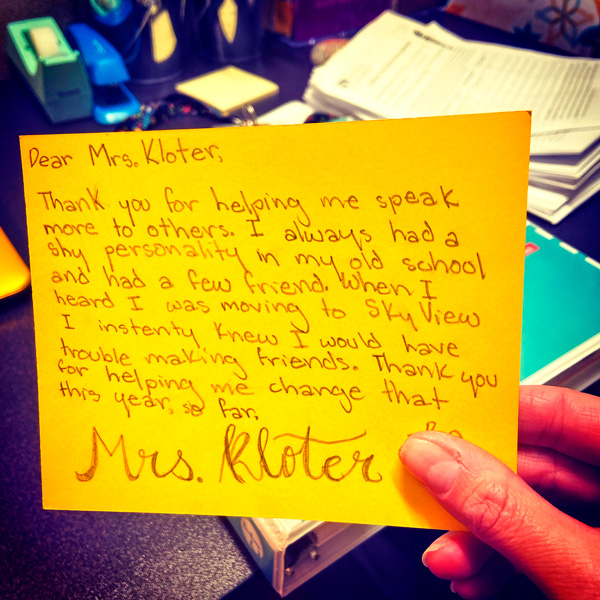 Dear Mrs. Kloter,
Thank you for helping me speak
more to others. I always had a
shy personality in my old school
and had a few friend. When I
heard I was moving to Sky View
I instenty knew I would have
trouble making friends. Thank you
for helping me change that
this year, so far.
Mrs. Kloter